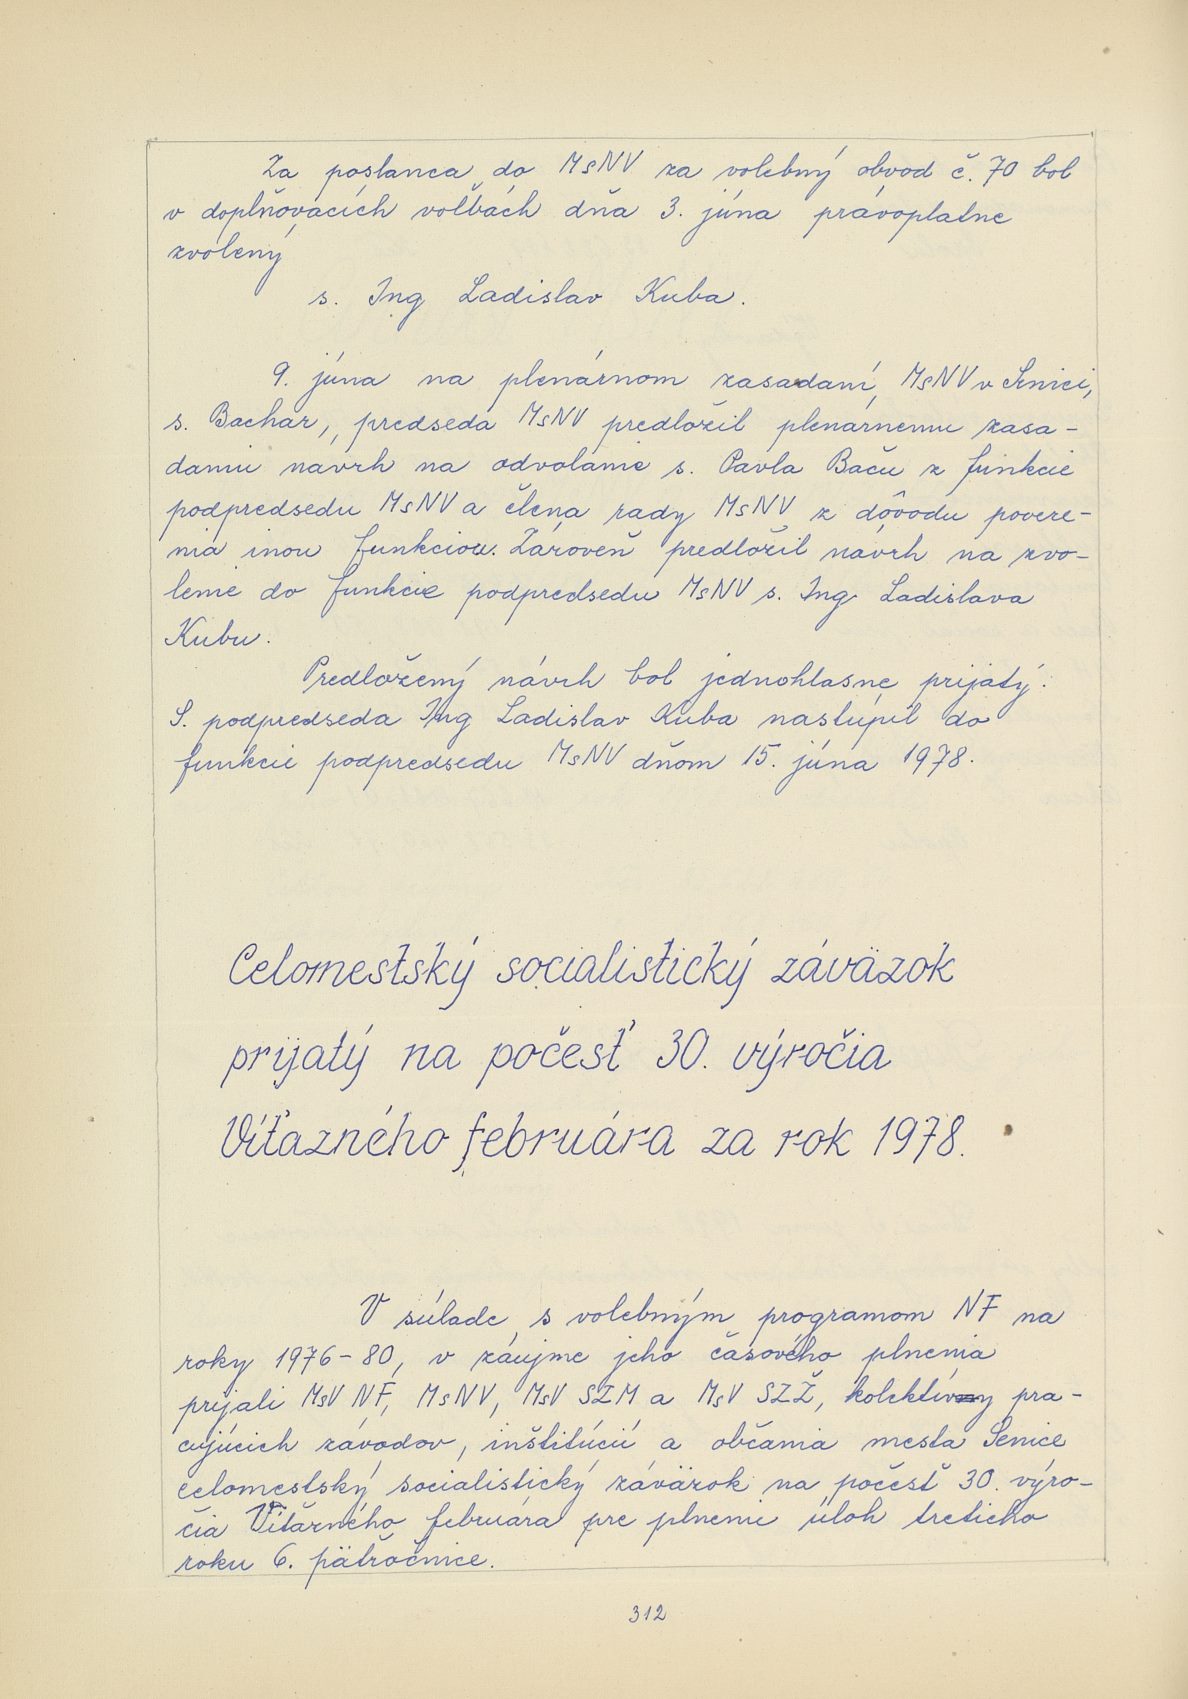 Za poslanca do MsNV za volebný obvod č. 70 bol
v doplňovacích voľbách dňa 3. júna právoplatne
zvolený
s. Ing Ladislav Kuba.
9. júna na plenárnom zasadaní, MsNV v Senici,
s. Bachar, predseda MsNV predložil plenárnemu zasa-
daniu návrh na odvolanie s. Pavla Baču z funkcie
podpredsedu MsNV a člena rady MsNV z dôvodu povere-
nia inou funkciou. Zároveň predložil návrh na zvo-
lenie do funkcie podpredsedu MsNV s. Ing Ladislava
Kubu.
Predložený návrh bol jednohlasne prijatý.
S. podpredseda Ing Ladislav Kuba nastúpil do
funkcie podpredsedu MsNV dňom 15. júna 1978.
Celomestský socialistický záväzok
prijatý na počesť 30. výročia
Víťazného februára za rok 1978.
V súlade s volebným programom NF na
roky 1976-80, v záujme jeho časového plnenia
prijali MsV NF, MsNV, MsV SZM a MsV SZŽ, kolektívy pra-
cujúcich závodov, inštitúcií a občania mesta Senice
celomestský socialistický záväzok na počesť 30. výro-
čia Víťazného februára pre plnenie úloh tretieho
roku 6. päťročnice.
312